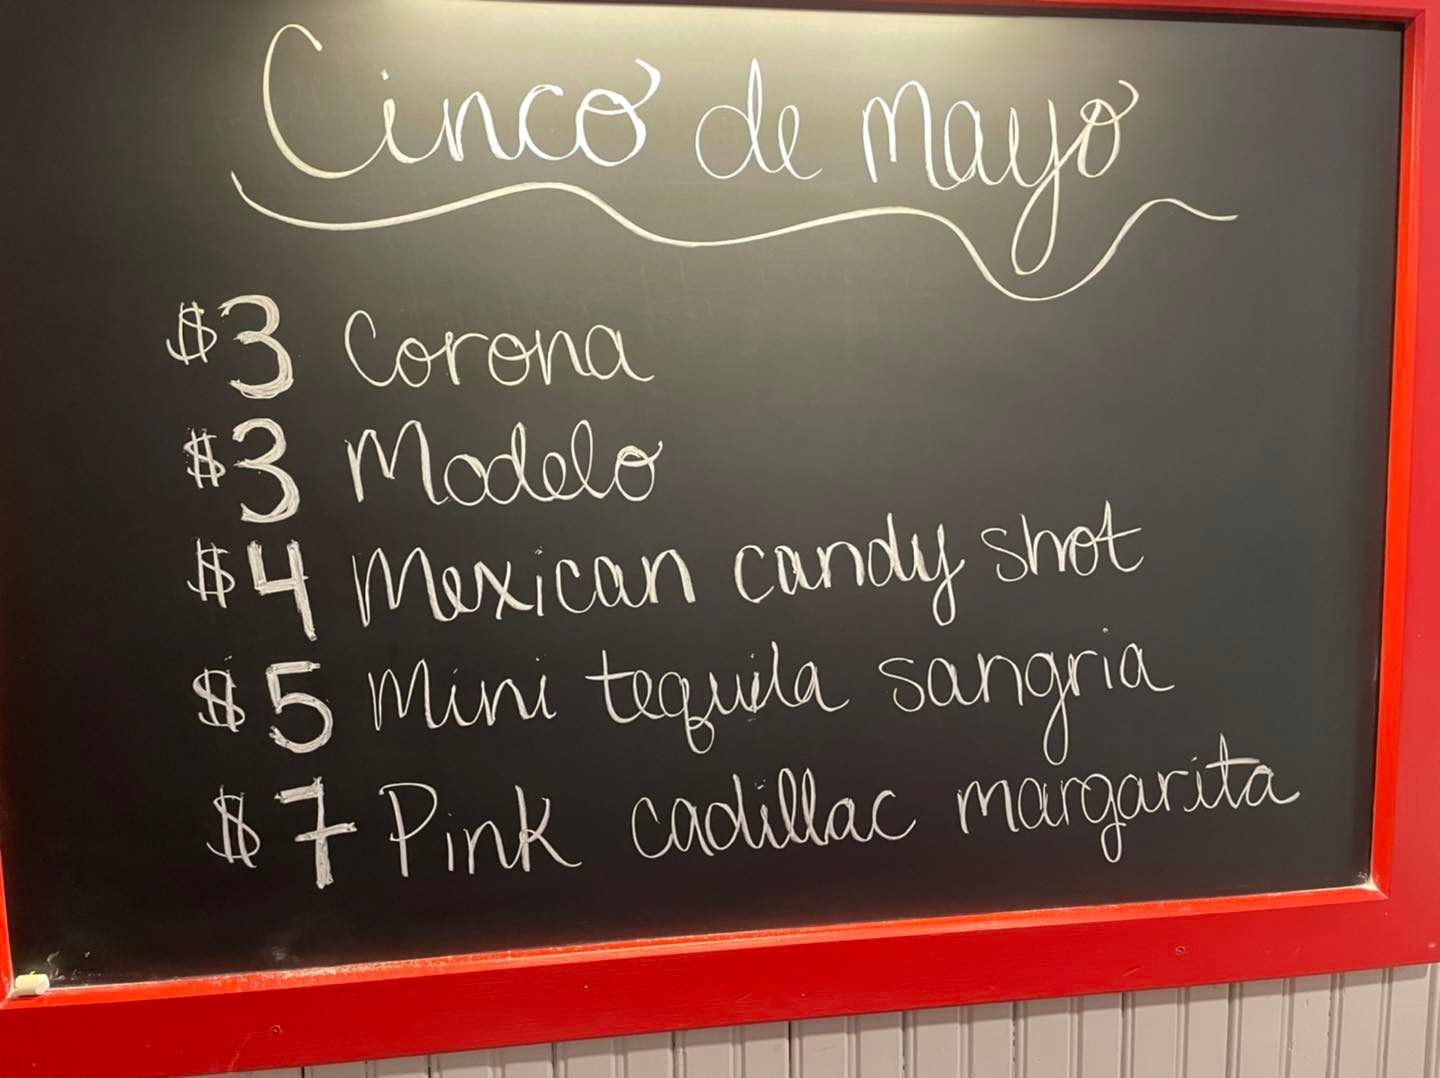 Cinco de Mayo
$3 Corona
$3 Modelo
$4 Mexican candy shot
$5 Mini tequila sangria
$7 Pink cadillac margarita